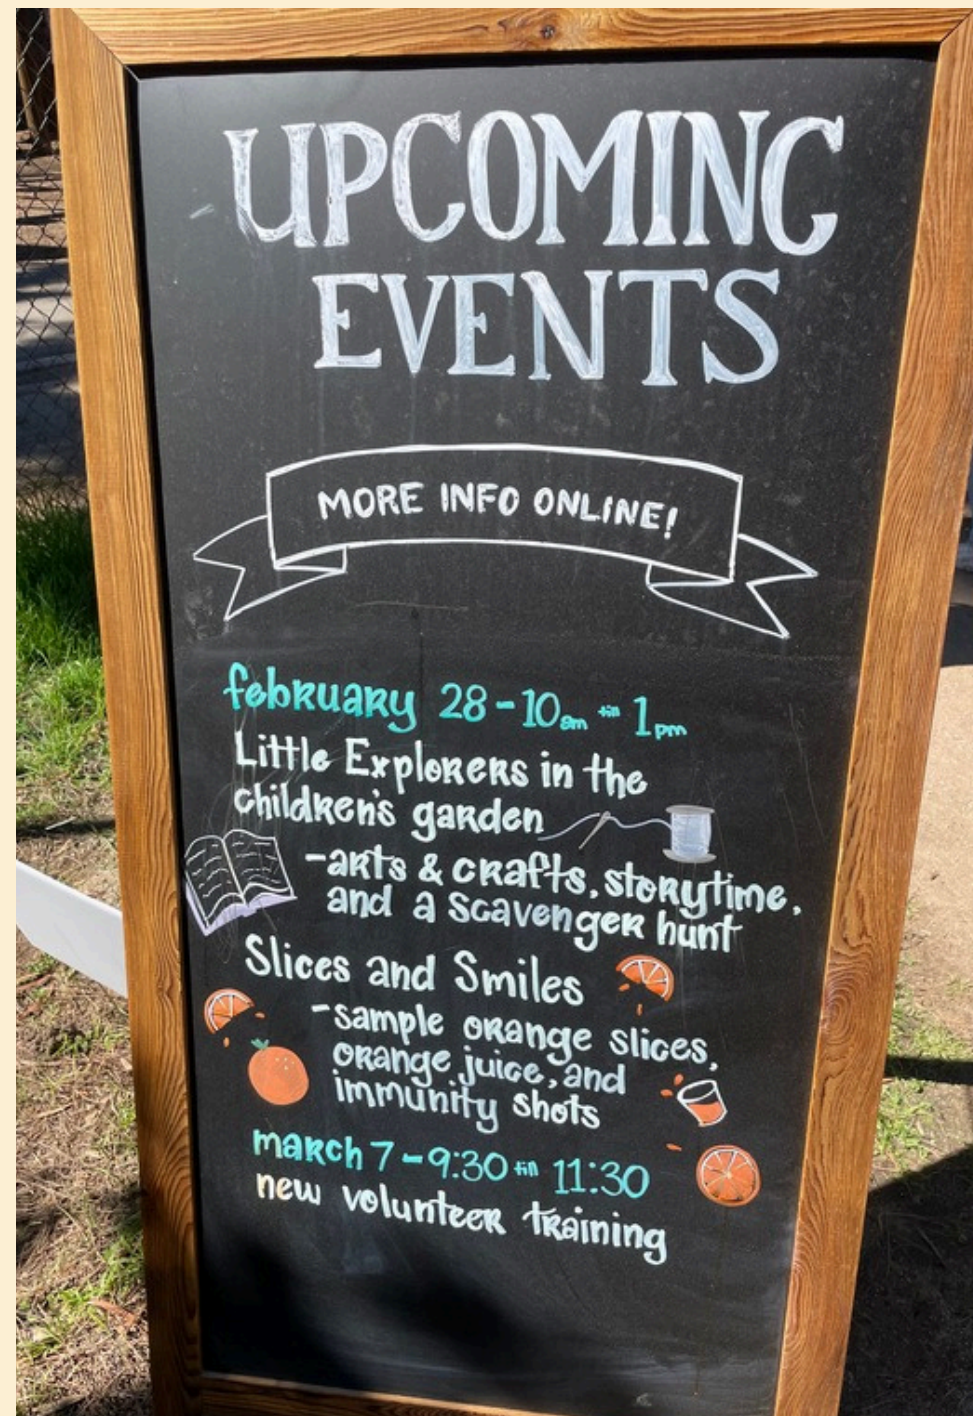 UPCOMING
EVENTS
MORE INFO ONLINE!
february 28 - 10am till 1pm
Little Explorers in the
children's garden
- arts & crafts, storytime,
and a scavenger hunt
Slices and Smiles
- sample orange slices,
orange juice, and
immunity shots
march 7 - 9:30 till 11:30
new volunteer training